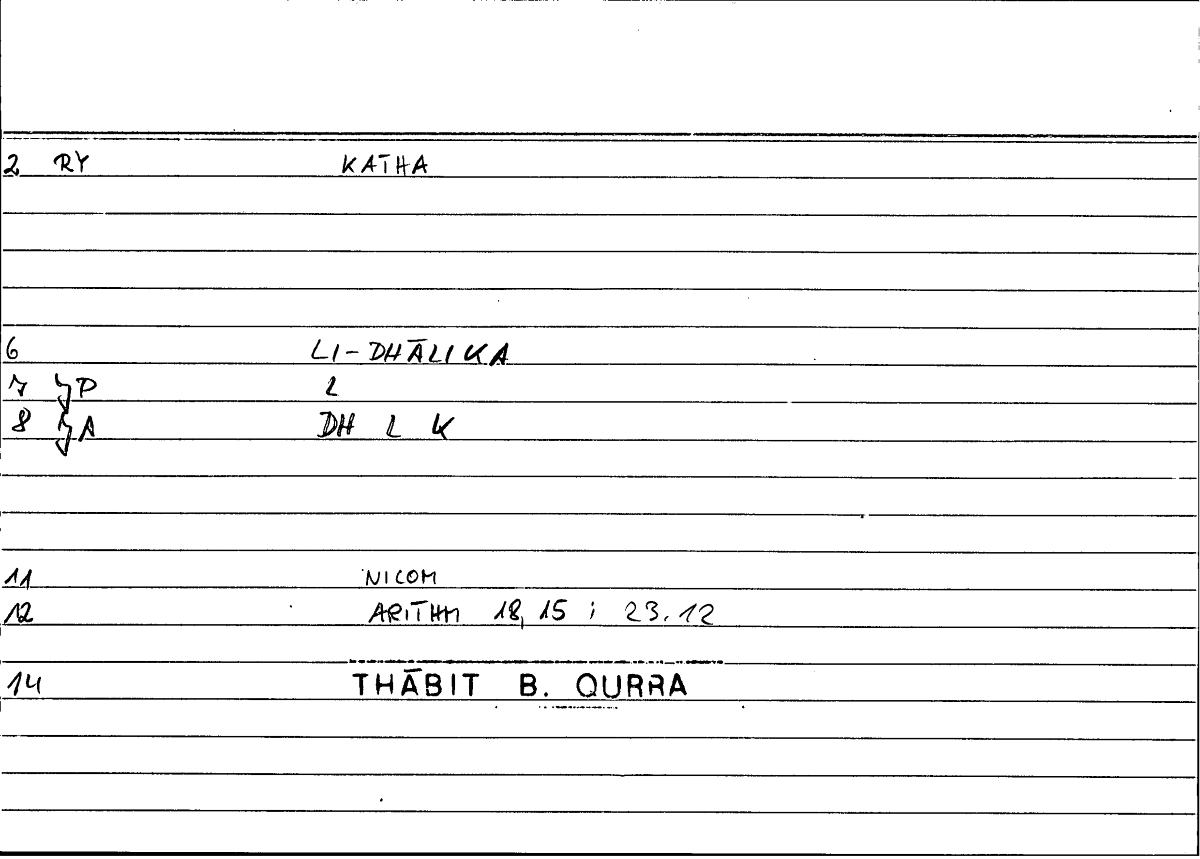 2 RY KATHA
6 LI-DHĀLIKA
7 P L
8 A DH L K
11 NICOM
12 ARITHM 18,15 ; 23.12
14 THĀBIT B. QURRA